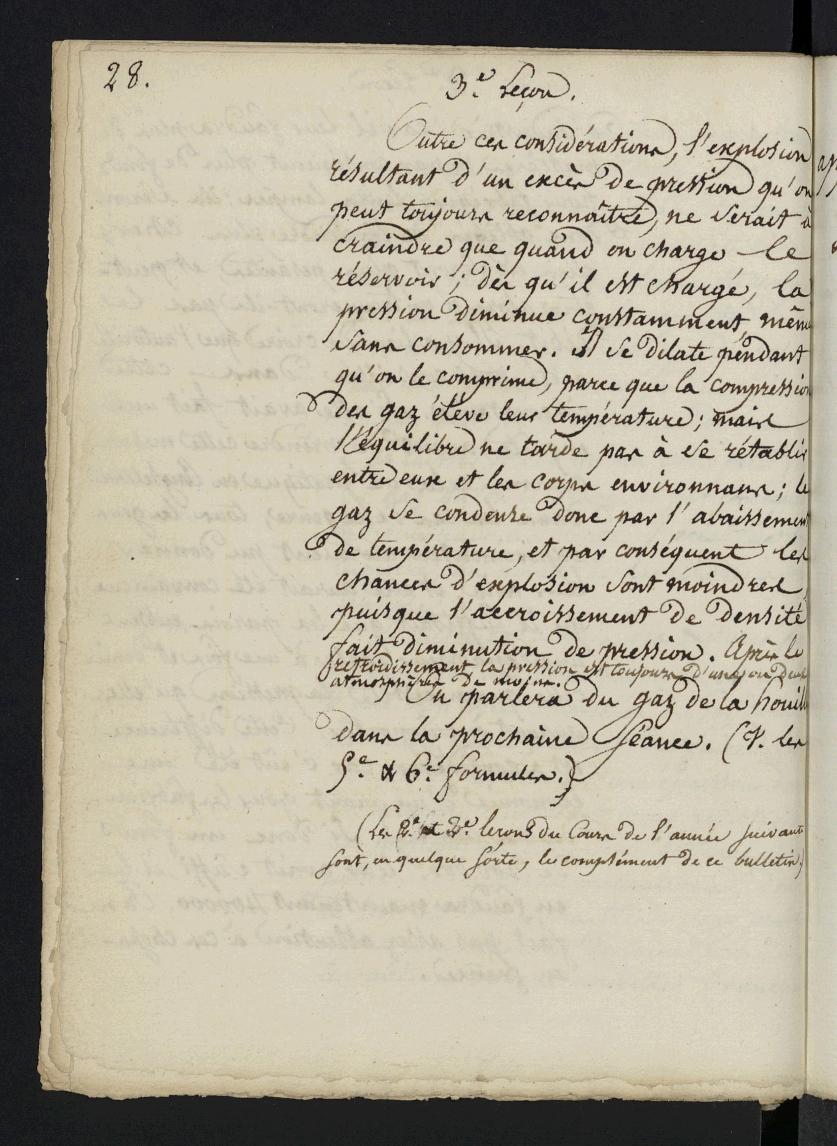 28.
3.e Leçon.
Outre ces considérations, l'explosion
résultant d'un excès de pression qu'on
peut toujours reconnaître, ne serait à
craindre que quand on charge le
réservoir ; dès qu'il est chargé, la
pression diminue constamment, même
sans consommer. Il se dilate pendant
qu'on le comprime, parce que la compression
des gaz élève leur température ; mais
l'équilibre ne tarde pas à se rétablir
entre eux et les corps environnans ; le
gaz se condense donc par l'abaissement
de température, et par conséquent les
chances d'explosion sont moindres,
puisque l'accroissement de densité
fait diminution de pression. Après le
refroidissement la pression est toujours d'une ou deux
atmosphères de moins.
On parlera du gaz de la houille
dans la prochaine séance. (V. les
5.e & 6.e formules.)
(Les et 2.e leçons du Cours de l'année suivante
sont, en quelque sorte, le complément de ce bulletin)